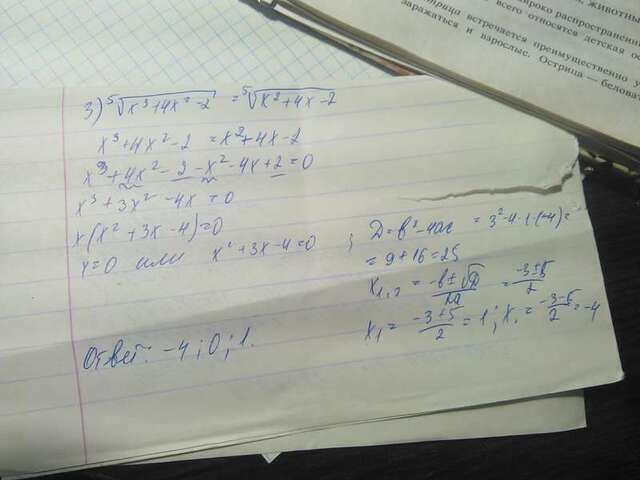 широко распространен
всего относятся детская ос
трица встречается преимущественно у
заражаться и взрослые. Острица — беловат
3) ⁵√x³+4x²-2 = ⁵√x²+4x-2
x³+4x²-2 = x²+4x-2
x³+4x²-2-x²-4x+2=0
x³+3x²-4x=0
x(x²+3x-4)=0
x=0 или x²+3x-4=0 ;
D=b²-4ac = 3²-4·1·(-4)=
= 9+16=25
x₁,₂ = -b±√D/2a = -3±5/2
x₁ = -3+5/2 = 1; x₂ = -3-5/2 = -4
Ответ: -4; 0; 1.